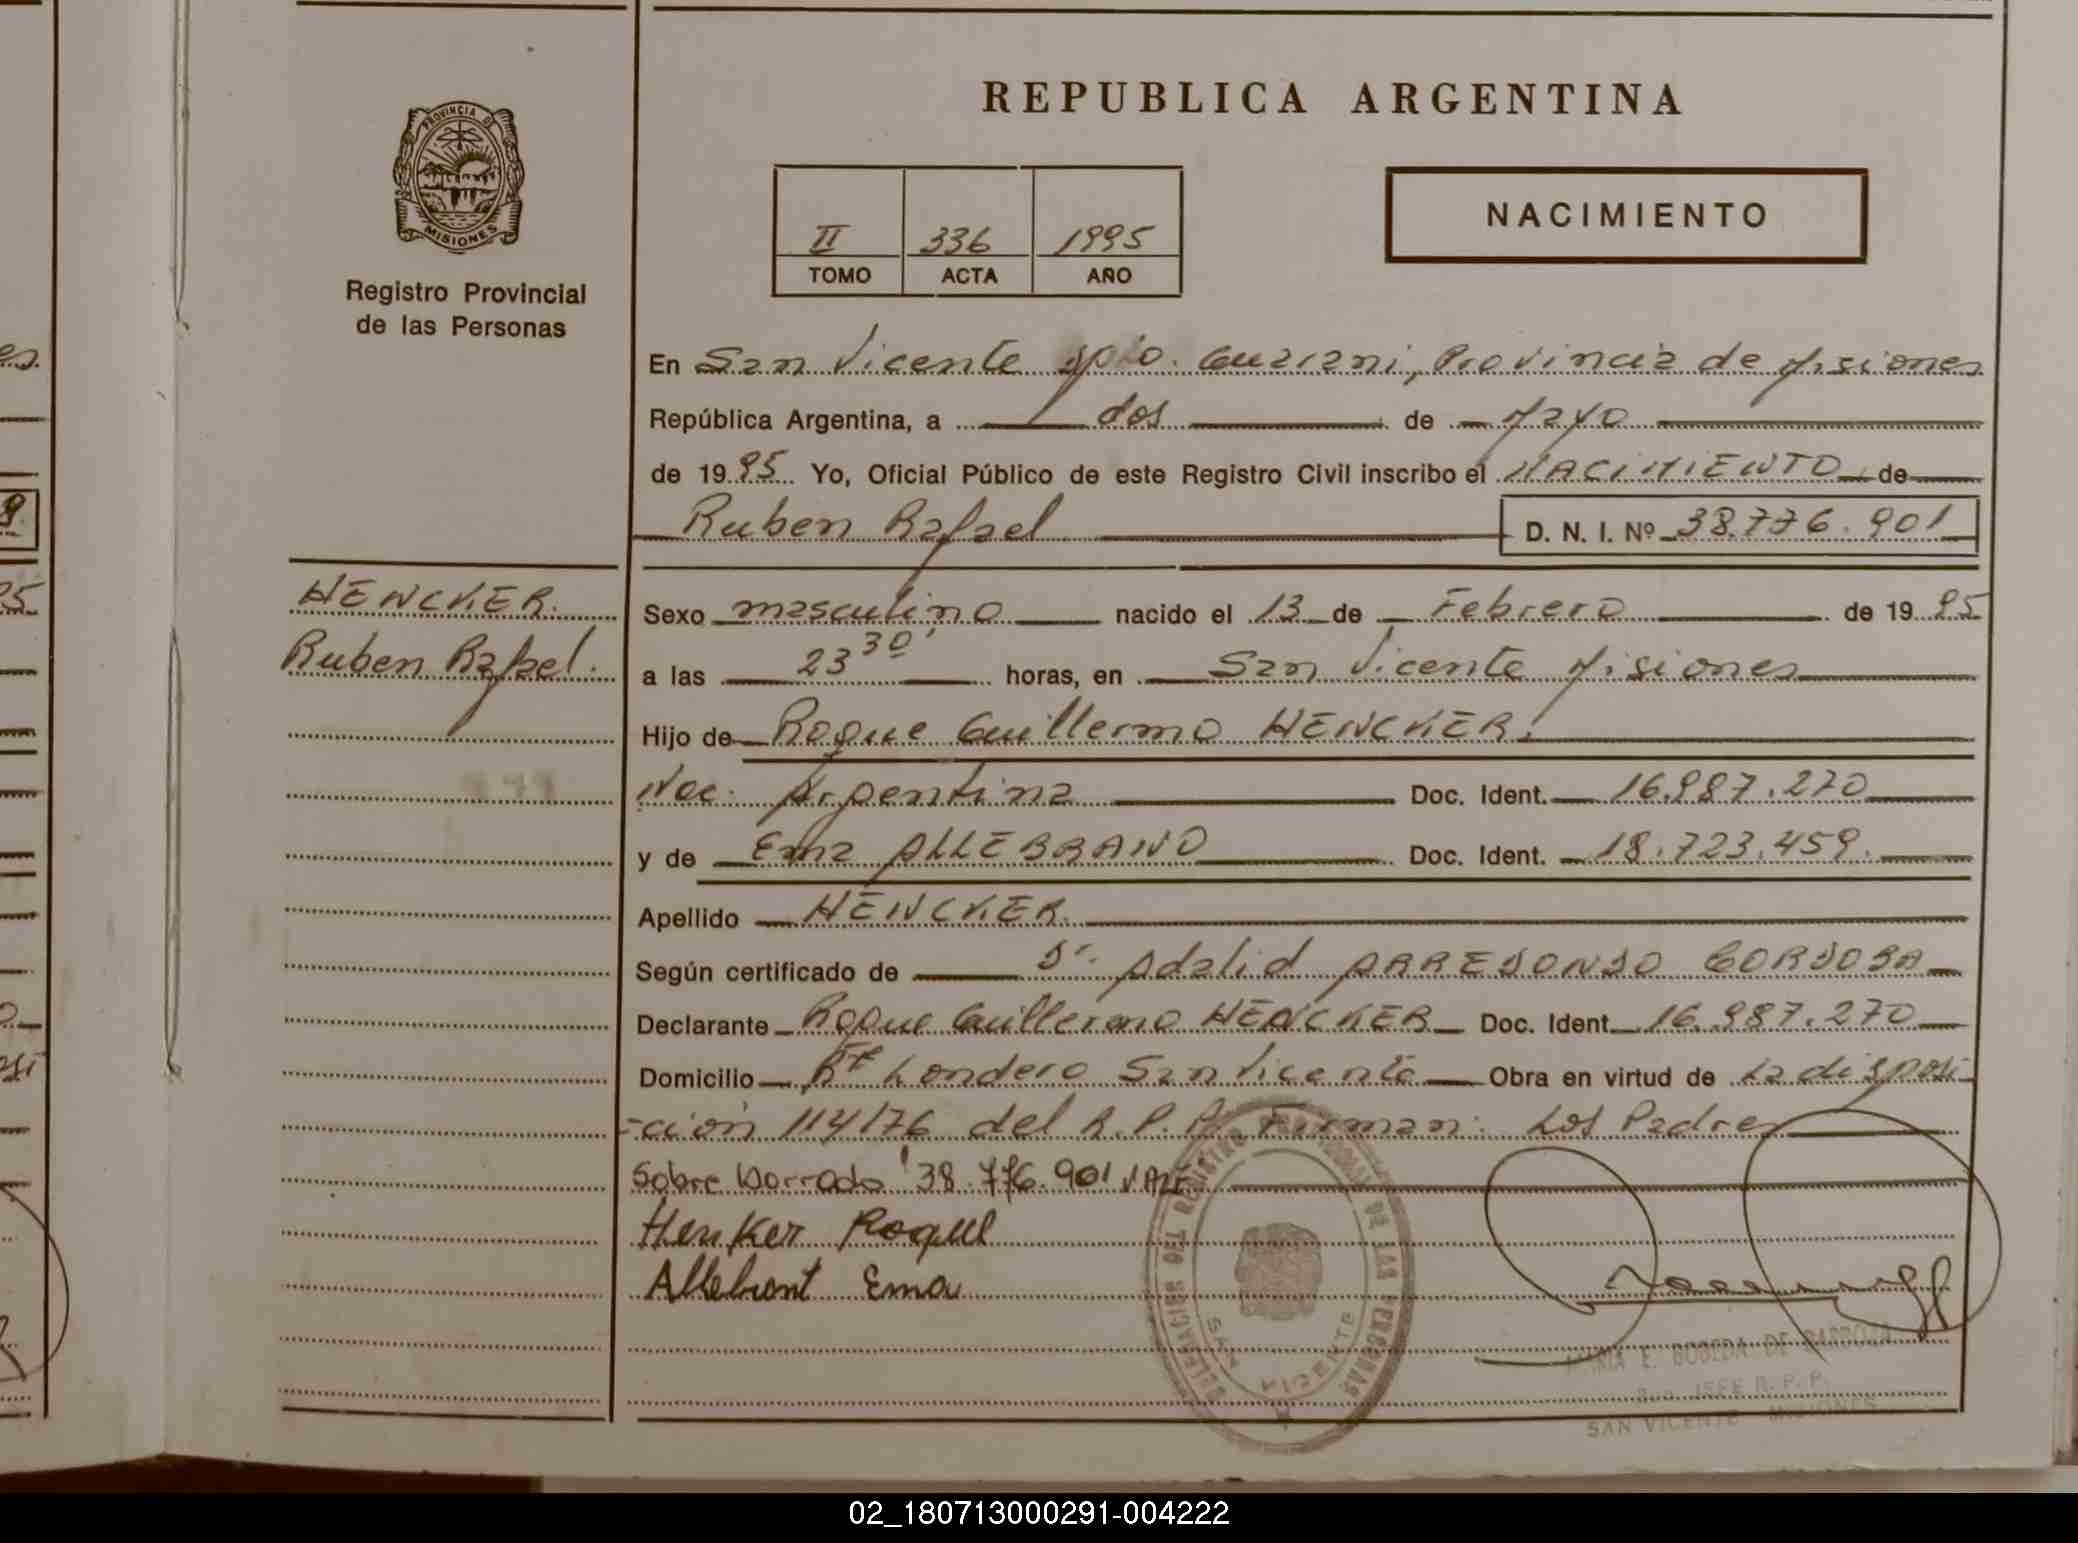 REPUBLICA ARGENTINA
PROVINCIA DE
MISIONES
Registro Provincial
de las Personas
II 336 1995
TOMO ACTA AÑO
NACIMIENTO
En San Vicente Dpto. Guarani, Provincia de Misiones
República Argentina, a dos de Mayo
de 1995 Yo, Oficial Público de este Registro Civil inscribo el NACIMIENTO de
Ruben Rafael D. N. I. Nº 38.776.901
HENCKER.
Ruben Rafael.
Sexo masculino nacido el 13 de Febrero de 1995
a las 23 30' horas, en San Vicente Misiones
Hijo de Roque Guillermo HENCKER.
Nac. Argentina Doc. Ident. 16.987.270
y de Ema ALLEBRAND Doc. Ident. 18.723.459.
Apellido HENCKER.
Según certificado de Dr. Adalid ARREDONDO CORDOBA
Declarante Roque Guillermo HENCKER Doc. Ident. 16.987.270
Domicilio Londero San Vicente Obra en virtud de La disposi
-ción 114/76 del R.P.P. Firman: Los Padres
Sobre borrado 38.776.901 VALE
Henker Roque
Allebrant Ema
DELEGACION DEL REGISTRO PROVINCIAL DE LAS PERSONAS
SAN VICENTE
MARIA E. BOBEDA DE
JEFE R. P. P.
SAN VICENTE MISIONES
02_180713000291-004222